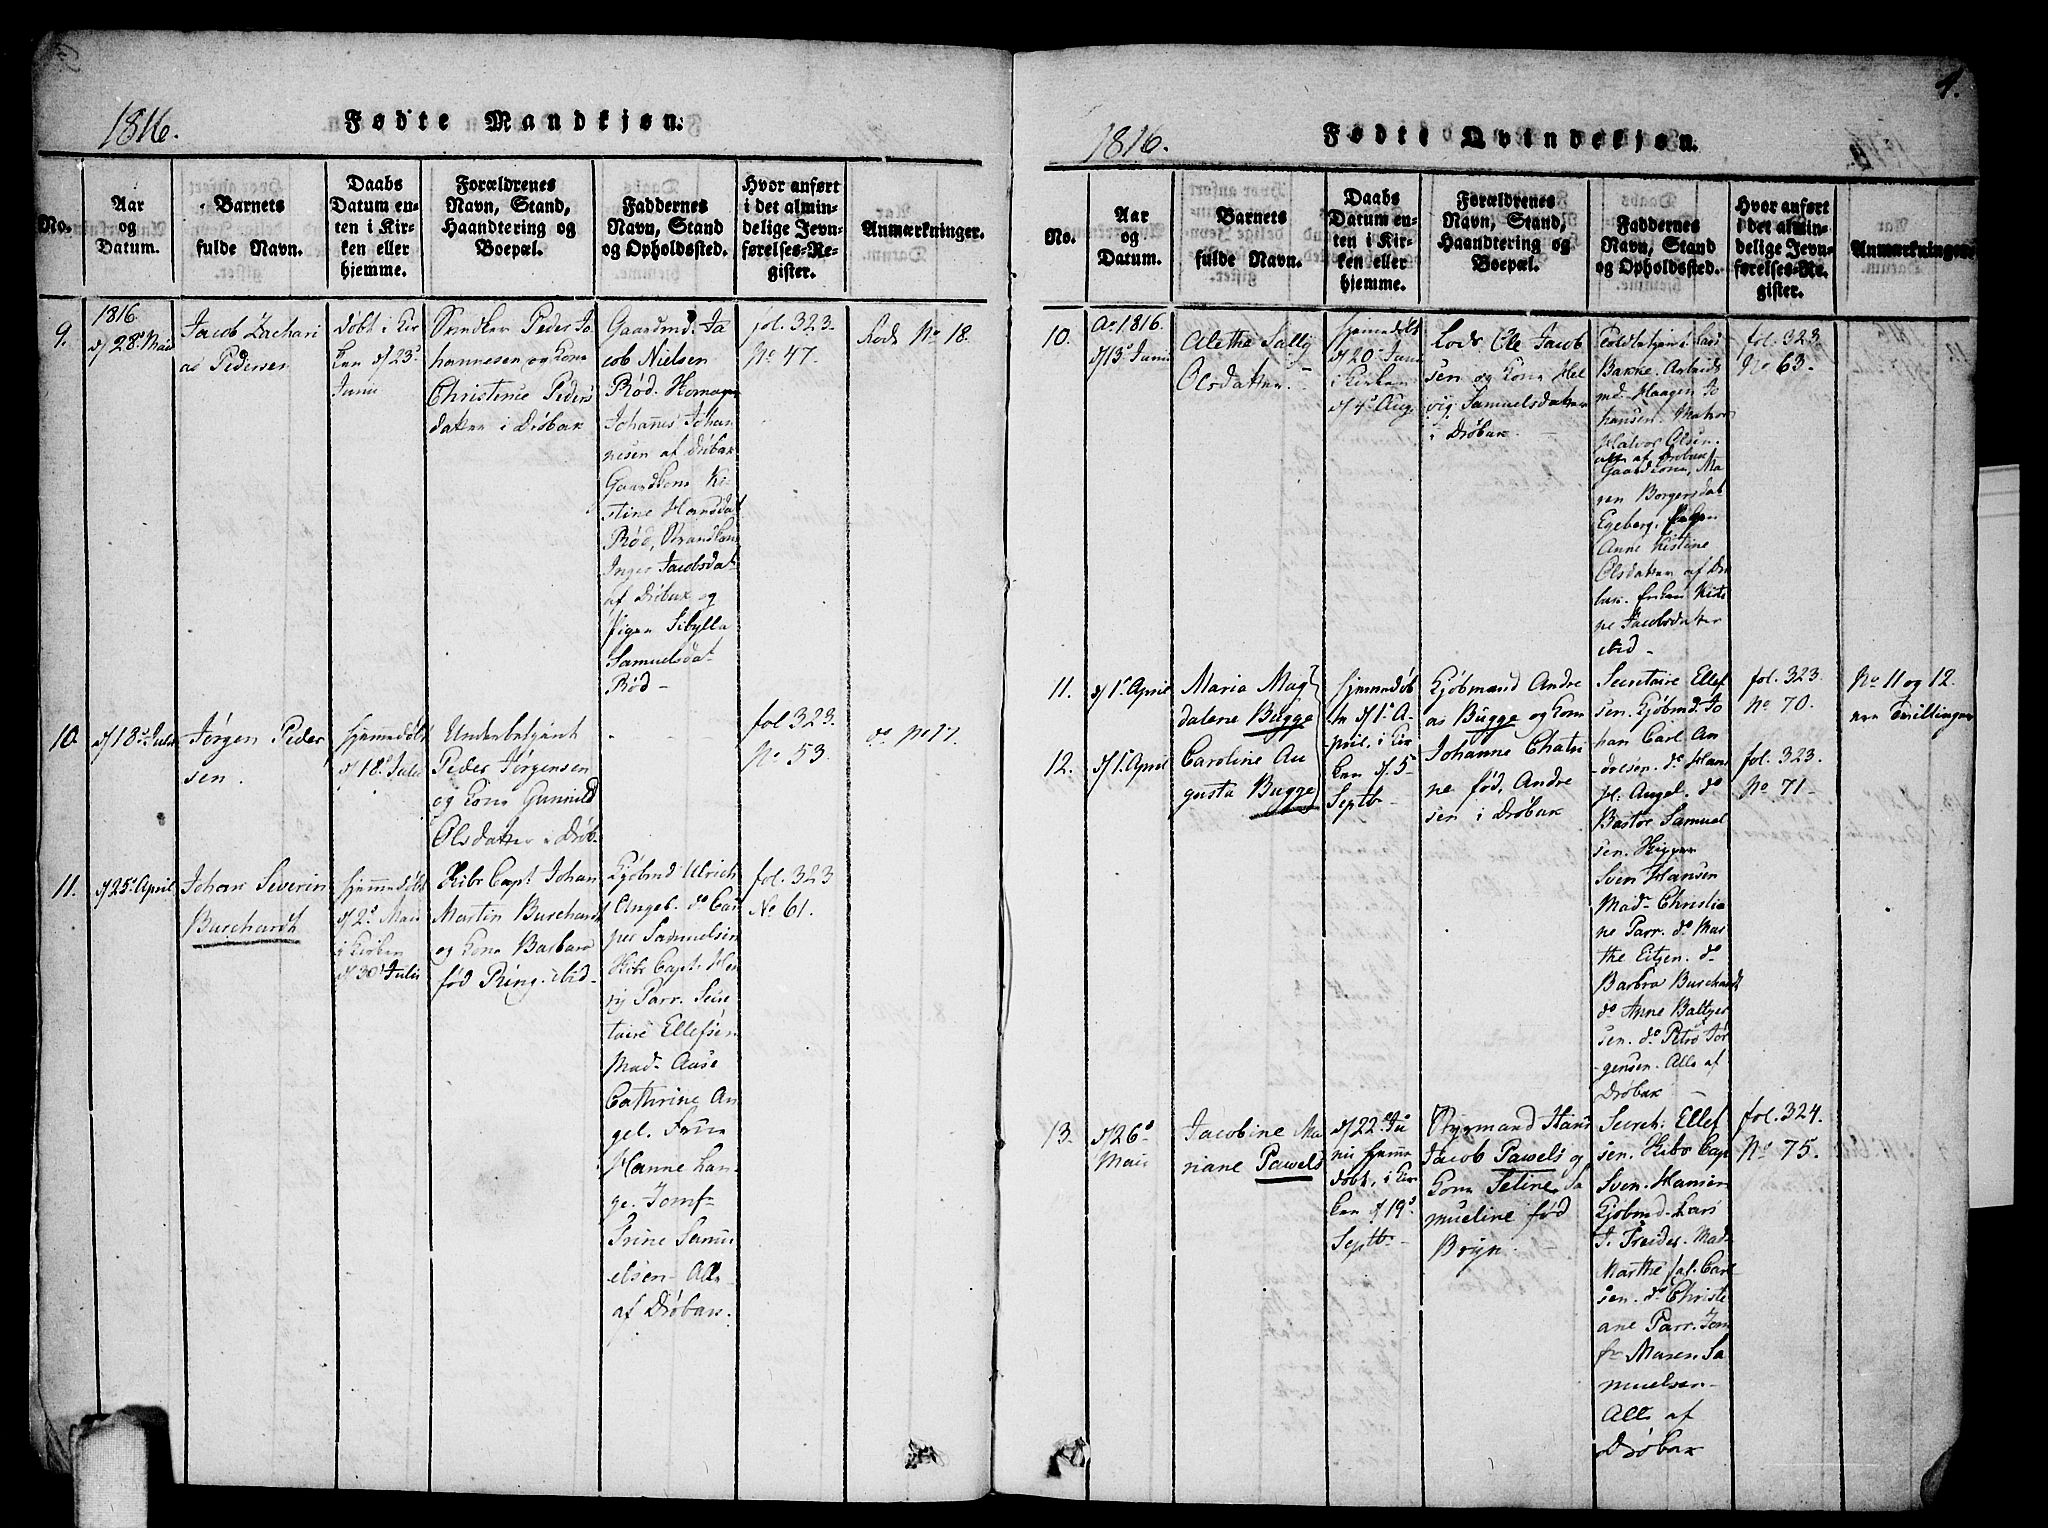 1816.
Fødte Mandkjøn.
No.
Aar
og
Datum.
Barnets
fulde Navn.
Daabs
Datum en-
ten i Kir-
ken eller
hjemme.
Forældrenes
Navn, Stand,
Haandtering og
Boepæl.
Faddernes
Navn, Stand
og Opholdssted.
Hvor anført
i det almin-
delige Jevn-
førelses-Re-
gister.
Anmærkninger.
9.
1816
d/28de Maii
Jacob Zachari
as Pedersen
døbt i Kir
ken d/23de
Junii
Snedker Peder Jo
hannesen og Kone
Christine Peders
datter i Drøbak
Gaardmd. Ja
cob Nielsen
Rød.
Johannes Johan
nesen af Drøbak
Gaardkone Ki
stine Hansdat
Rød,
Inger Jacobsdat
af Drøbak og
Pigen Sibylla
Samuelsdat
Rød -
fol. 323.
No 47.
No 18.
10.
d/18de Julii
Jørgen Peder
sen.
hjemmedøbt
d/18de Julii
Underbetjent
Peder Jørgensen
og Kone Gunnild
Olsdatter i Drøb-
fol 323.
No 53.
do No 17.
11.
d/25de April
Johan Severin
Burchardt
hjemmedøbt
d/2de Maii
i Kirken
d/30te Julii
Skibs Capt Johan
Martin Burchardt
og Kone Barbara
fød Ring. ibid-
Kjøbmd Ulrich
Angel. do Cas
per Samuelsen
Skibs Capt. Hen
ry Parr. Secre
taire Ellefsen
Mad. Aase
Cathrine An
gel. Frue
Hanne Lan
ge. Jomf
Trine Samu
elsen- Alle
af Drøbak.
fol. 323
No 61.
4.
1816.
Fødte Qvindekjøn.
No.
Aar
og
Datum.
Barnets
fulde Navn.
Daabs
Datum en-
ten i Kir-
ken eller
hjemme.
Forældrenes
Navn, Stand,
Haandtering og
Boepæl.
Faddernes
Navn, Stand
og Opholdssted.
Hvor anført
i det almin-
delige Jevn-
førelses-Re-
gister.
Anmærkninger.
10.
Ao 1816.
d/13de Junii
Aletha Sally
Olsdatter.
hjemmedøbt
d/20de Junii
i Kirken
d/4de Aug.
Lods Ole Jacob
sen og Kone Hel
vig Samuelsdatter
i Drøbak.
Toldbetjent Lars
Bakke. Arbeids
md. Haagen Jo
hansen. Matros
Halvor Olsen.
alle af Drøbak
Gaardkone, Ma
ren Borgersdat
Egeberg. Pigen
Anne Kistine
Olsdatter af Drø
bak. Enken Kisti
ne Jacobsdatter
ibid -
fol. 323.
No 63.
11.
d/1de April
Maria Mag
dalene Bugge
hjemmedøb
te d/1de A-
pril. i Kir
ken d/5
Septb-
Kjøbmand Andre
as Bugge og Kone
Johanne Chatri
ne fød, Andre
sen i Drøbak
Secretaire Ellef
sen. Kjøbmd. Jo
han Carl An
dresen. do Han
fr. Angel. do
Bastor Samuel
sen. Skipper
Sven Hansen
Mad. Christia
ne Parr. do Mar
the Eitzen. do
Barbra Burchardt
do Anne Baltzer
sen. do Petro Jør
gensen. Alle af
Drøbak -
fol. 323.
No 70.
No 11 og 12.
ere Tvillinger
12.
d/1. April
Caroline Au
gusta Bugge
fol. 323.
No 71-
13.
d/26de
Maii
Jacobine Ma
riane Pawels
d/22de Ju
nii hjemme
døbt, i Kir
ken d/19de
Septb-
Styrmand Hans
Jacob Pawels og
Kone Seline Sa
mueline fød
Bryn. -
Secret: Ellef
sen. Skibs Capt
Sven Hansen
Kjøbmd. Lars
J. Treider. Mad
Marthe sal. Carl
sen. do Christi
ane Parr. Jom
fr Maren Sa
muelsen-
Alle af
Drøbak
fol. 324.
No 75.